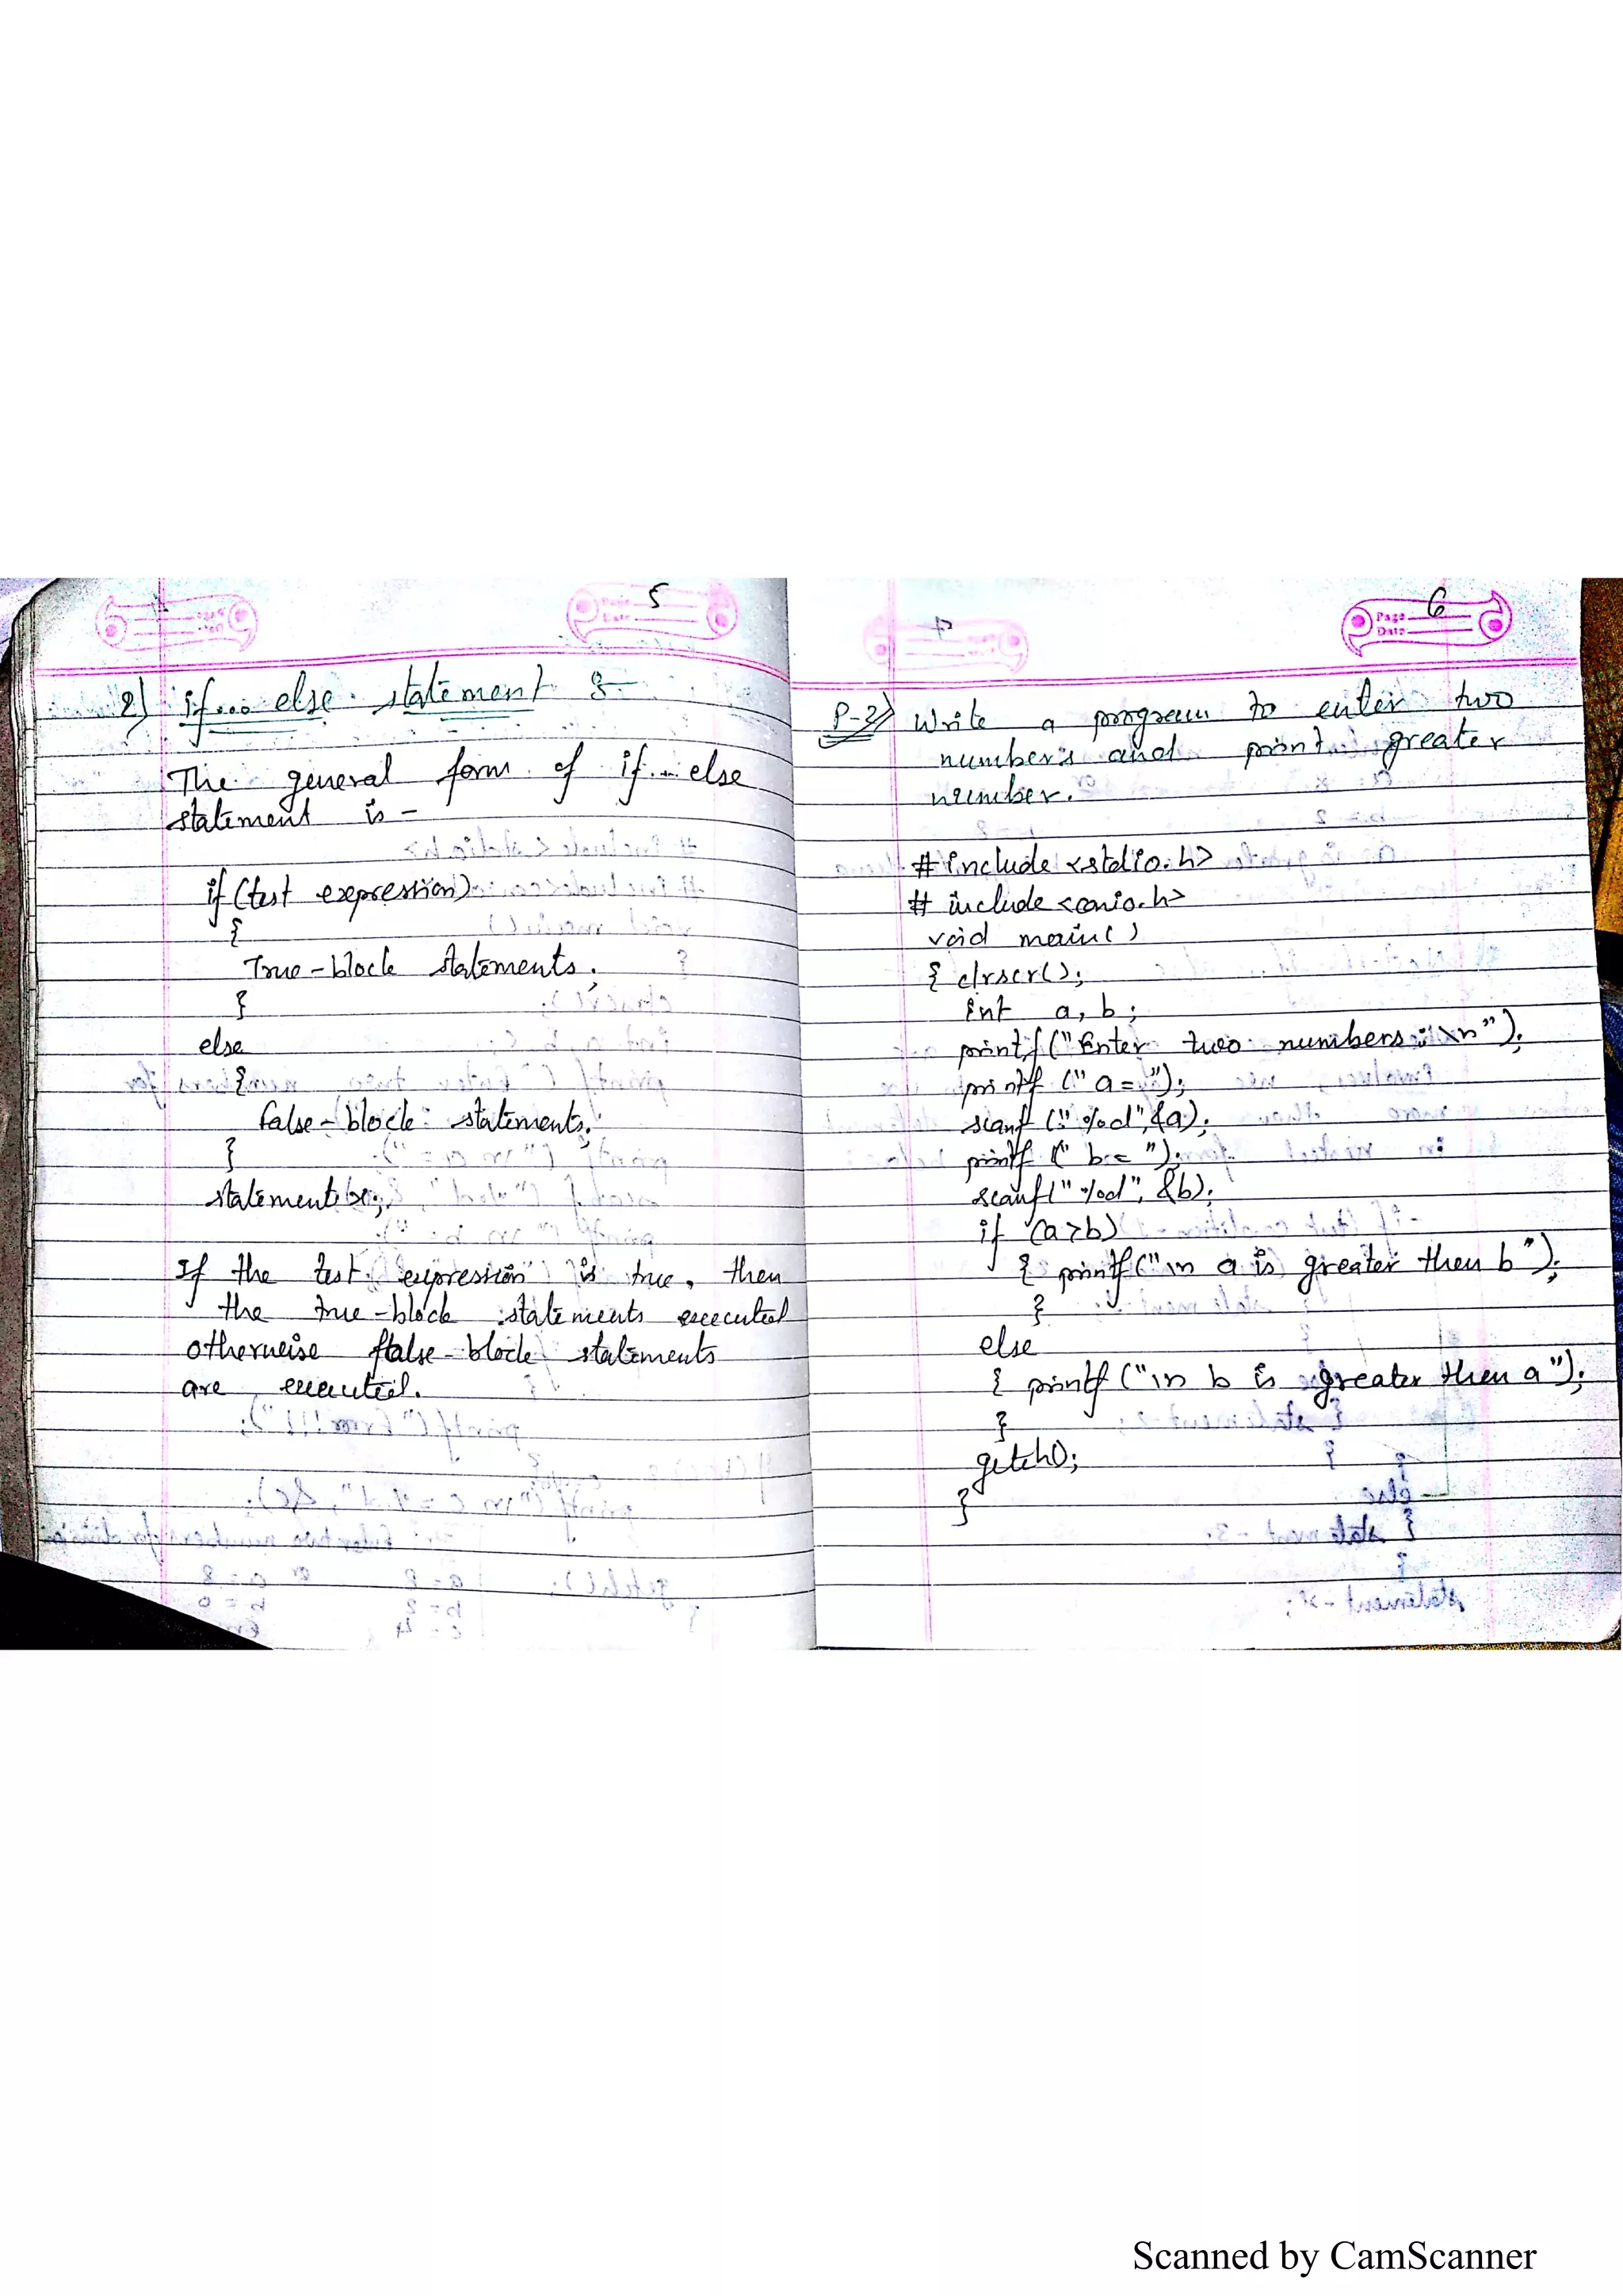 5
2) if... else statement :-
The general form of if...else
statement is -
if (test expression)
{
True-block statements;
}
else
{
false-block statements;
}
statement x;
If the test expression is true, then
the true-block statements executed
otherwise false-block statements
are executed.
Page 6
Date
P-2) Write a program to enter two
numbers and print greater
number.
#include <stdio.h>
# include <conio.h>
void main()
{ clrscr();
int a, b;
printf("Enter two numbers: \n");
printf ("a=");
scanf ("%d",&a);
printf (" b= ");
scanf("%d", &b);
if (a>b)
{ printf("\n a is greater then b");
}
else
{ printf ("\n b is greater then a");
}
getch();
}
Scanned by CamScanner